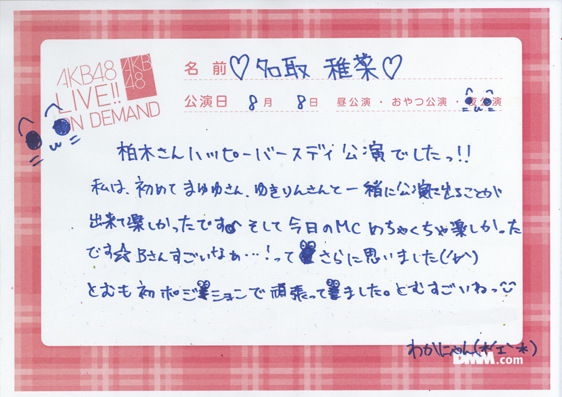 AKB48
LIVE!!
ON DEMAND
AKB
48
名前 ♡名取 稚菜♡
公演日 8月 8日 昼公演・おやつ公演・夜公演
柏木さんハッピーバースデイ公演でしたっ!!
私は、初めてまゆゆさん、ゆきりんさんと一緒に公演に出ることが
出来て楽しかったです♪そして今日のMCめちゃくちゃ楽しかった
です☆Bさんすごいなぁ…!ってさらに思いました
とむも初ポジションで頑張ってました。とむすごいねっ
わかにゃん
DMM.com